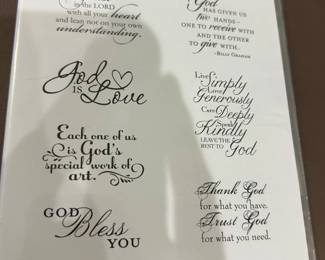 in the LORD
with all your heart
and lean not on your own
understanding.
God
HAS GIVEN US
two HANDS–
ONE TO receive WITH
AND THE OTHER
TO give WITH.
-BILLY GRAHAM
God
IS Love
Live Simply
Love Generously
Care Deeply
Speak Kindly
LEAVE THE REST TO God
Each one of us
is God's
special work of
art.
GOD
Bless
YOU
Thank God
for what you have.
Trust God
for what you need.